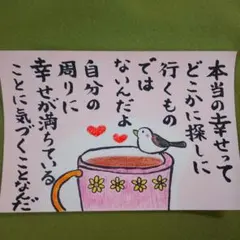 本当の幸せって
どこかに探しに
行くもの
では
ないんだよ
自分の
周りに
幸せが満ちている
ことに気づくことなんだ